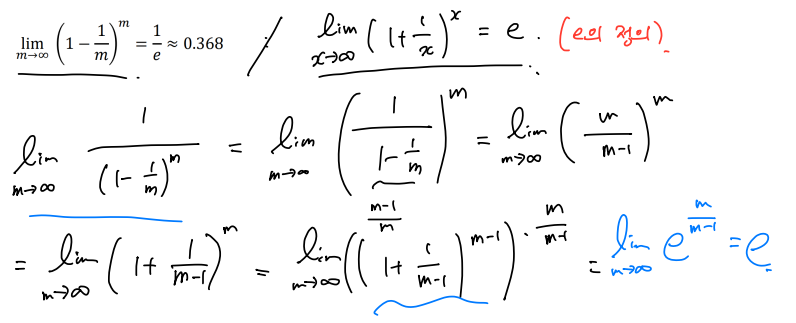 lim_{m→∞} (1 − 1/m)^m = 1/e ≈ 0.368 / lim_{x→∞} (1 + 1/x)^x = e. (e의 정의).
lim_{m→∞} 1/(1 − 1/m)^m = lim_{m→∞} (1/(1 − 1/m))^m = lim_{m→∞} (m/(m−1))^m
(m−1)/m
= lim_{m→∞} (1 + 1/(m−1))^m = lim_{m→∞} ((1 + 1/(m−1))^{m−1})^{· m/(m−1)} = lim_{m→∞} e^{m/(m−1)} = e.